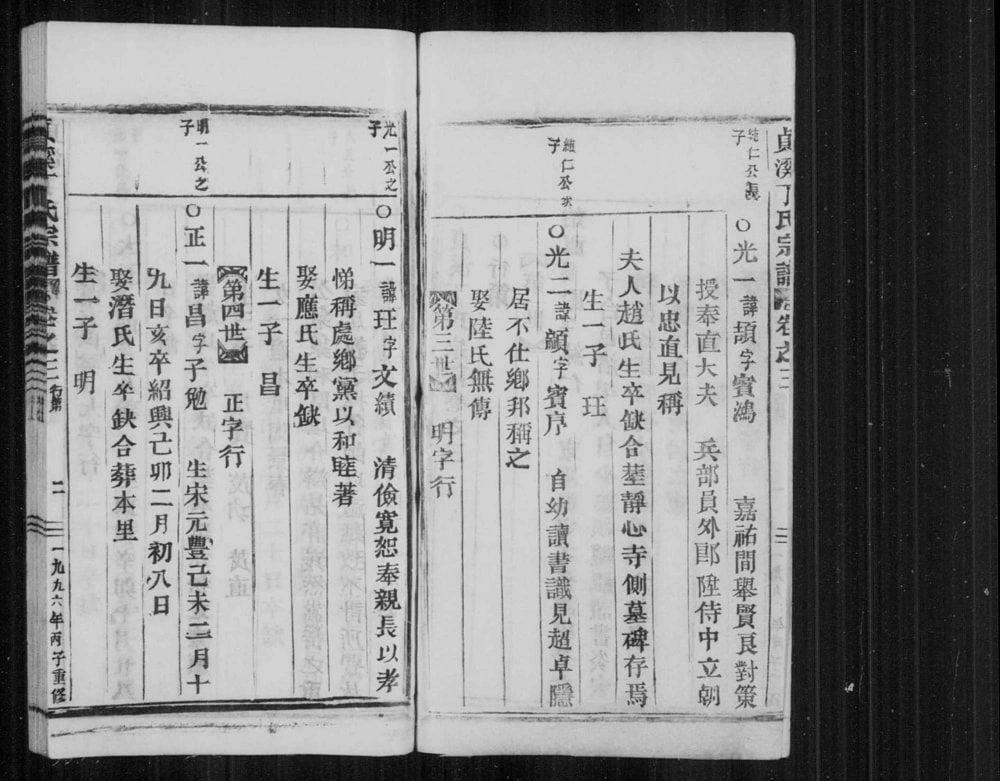 貞溪丁氏宗譜 卷之三
純仁公長子
○光一 諱頡 字賓鴻 嘉祐間舉賢良對策
授奉直大夫 兵部員外郎陞侍中立朝
以忠直見稱
夫人趙氏生卒缺合塟靜心寺側墓碑存焉
生一子 玨
純仁公次子
○光二 諱顧 字賓序 自幼讀書識見超卓隱
居不仕鄉邦稱之
娶陸氏無傳
第三世 明字行
光一公之子
○明一 諱玨 字文績 清儉寬恕奉親長以孝
悌稱處鄉黨以和睦著
娶應氏生卒缺
生一子 昌
第四世 正字行
明一公之子
○正一 諱昌 字子勉 生宋元豐己未二月十
九日亥卒紹興己卯二月初八日
娶潛氏生卒缺合葬本里
生一子 明
氏宗譜 卷之三 行第 二 一九九六年丙子重修